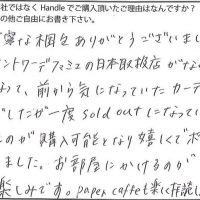 社ではなくHandleでご購入頂いたご理由はなんですか?
の他ご自由にお書き下さい。
寧な梱包ありがとうございまし
ントワーデファミエの日本取扱店がな
みて、前から気になっていたカーテ
でしたが一度sold outになってい
のが購入可能となり嬉しくてポ
ました。お部屋にかけるのが
楽しみです。